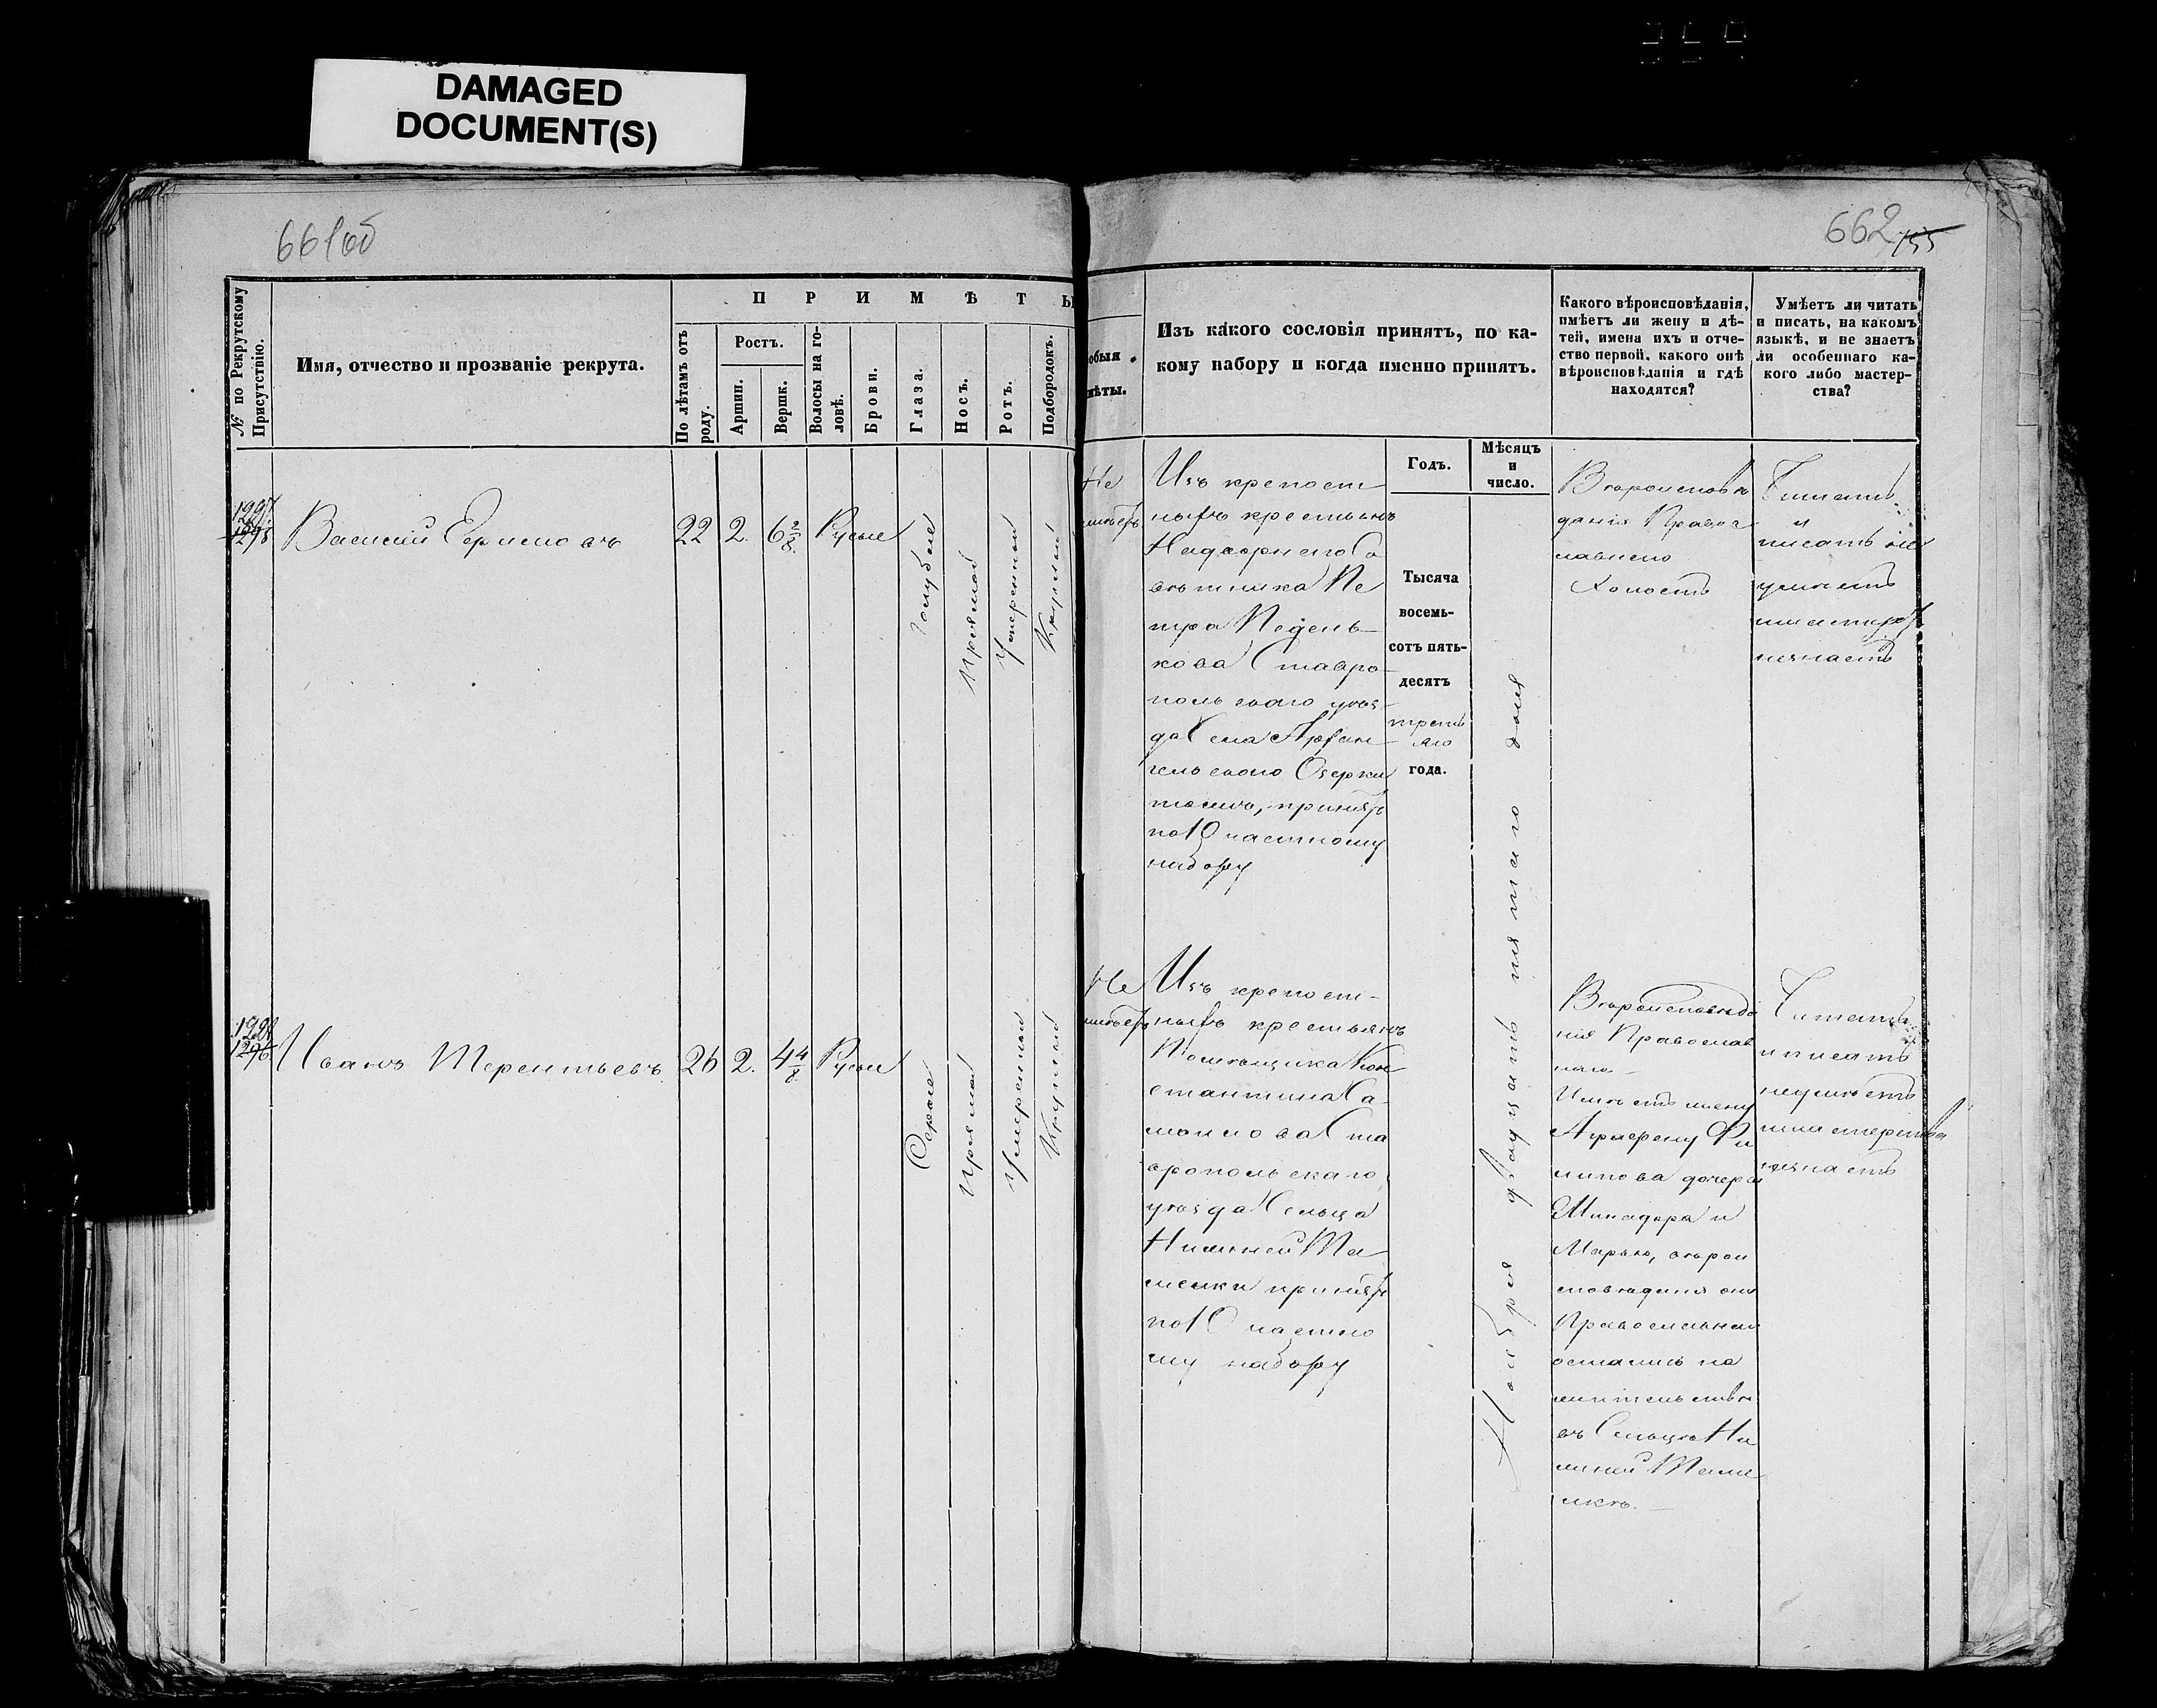 DAMAGED
DOCUMENT(S)
661об
662
155
№ по Рекрутскому
Присутствію.
Имя, отчество и прозваніе рекрута.
П Р И М Ѣ Т Ы
По лѣтамъ отъ
роду.
Ростъ.
Аршин.
Вершк.
Волосы на го-
ловѣ.
Брови.
Глаза.
Носъ.
Ротъ.
Подбородокъ.
обыя
мѣты.
Изъ какого сословія принятъ, по ка-
кому набору и когда именно принятъ.
Годъ.
Мѣсяцъ
и
число.
Какого вѣроисповѣданія,
имѣетъ ли жену и дѣ-
тей, имена ихъ и отче-
ство первой, какого онѣ
вѣроисповѣданія и гдѣ
находятся?
Умѣетъ ли читать
и писать, на какомъ
языкѣ, и не знаетъ
ли особеннаго ка-
кого либо мастер-
ства?
1297
Василий
22
2.
6 2/8.
Русые
голубые
прямой
умеренный
Круглый
Не
имѣетъ
Изъ крепост
ныхъ крестьянъ
Надворнаго Со
вѣтника Пе
тра Педень-
кова Ставро-
польскаго уѣз-
да Села Архан-
гельскаго Озерки
тожъ, принятъ
по 10 частному
набору
Тысяча
восемь-
сотъ пять-
десятъ
треть
яго
года.
Ноября двадцать пятаго дня
Вѣроисповѣ
данія Право
славнаго
Холостъ
Читать
и
писать не
умѣетъ
мастерст
незнаетъ
1298
1296
Иванъ Терентьевъ
26
2.
4 4/8.
Русые
Серые
прямой
умеренный
Круглый
Не
имѣетъ
Изъ крепост-
ныхъ крестьянъ
Помѣщика Кон
стантина Са-
мойлова Ста
вропольскаго
уѣзда Сельца
Нижней Та
мелки принятъ
по 10 частно
му набору
Вѣроисповѣда
нія Православ
наго
Имѣетъ жену
Аграфену Фи
липова дочерей
Минадора и
Марью, вѣрои
сповѣданія они
Православнаго
остались на
жительствѣ
въ Сельцѣ Ни
жней Таме
лкѣ.
Читать
и писать
неумѣетъ
мастерства
незнаетъ